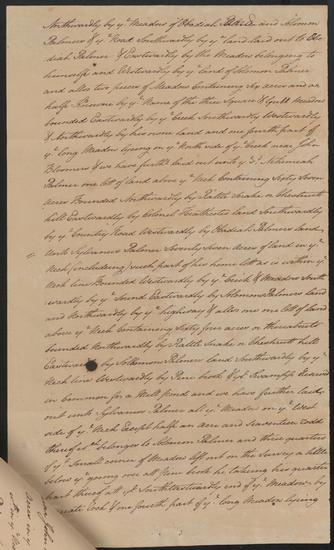 Northwardly by yᵉ Meadow of Obadiah Palmer and Solomon
Palmers & yᵉ Road Southwardly by yᵉ land laid out to Oba
diah Palmer & Eastwardly by the Meadow belonging to
himself and Westwardly by yᵉ land of Solomon Palmer
and allso two pieces of Meadow Containing Six acres and an
half Known by yᵉ Name of the three Square & Gull Meadow
bounded Eastwardly by yᵉ Creek Southwardly Westwardly
& Northwardly by his none land and one fourth part of
yᵉ long Meadow lyeing on yᵉ North side of yᵉ Creek near John
Bloomers & we have further laid out unto yᵉ sᵈ Nehemiah
Palmer one lott of land above yᵉ Neck Containing Sixty Seven
acres Bounded Northwardly by Rattle snake or Chestnut
hill Eastwardly by Colonel Heathcotes land Southwardly
by yᵉ Country Road Westwardly by Obadiah Palmers land
Unto Sylvanus Palmer Seventy Seven acres of land in yᵉ
Neck including such part of his home lott as is within yᵉ
Neck line Bounded Westwardly by yᵉ Creek & Meadow South
wardly by yᵉ Sound Eastwardly by Solomon Palmers land
and Northwardly by yᵉ highway & allso one lott of land
above yᵉ Neck Containing Sixty four acres or thereabouts
bounded Northwardly by Rattle snake or Chestnutt hill
Eastwardly by Solomon Palmers land Southwardly by yᵉ
Neck line Westwardly by Pine brook & yᵉ Swamp
in Common for a Mill pond and we have further laid
out unto Sylvanus Palmer all yᵉ Meadow on yᵉ West
side of yᵉ Neck Except half an acre and Seventeen rodd
thereof wᶜʰ belongs to Solomon Palmer and three quarters
of yᵉ Small corner of Meadow left out on the Survey a little
below yᵉ going over att Pine brook he taking his quarter
part thereof att yᵉ Southeastwardly end of yᵉ Meadow by
Creek & one fourth part of yᵉ long Meadow lyeing
near John